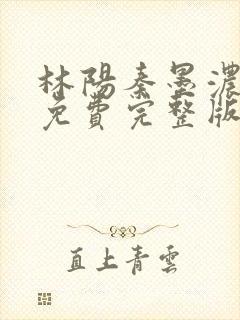 林陽秦墨濃
免費完整版
直上青雲